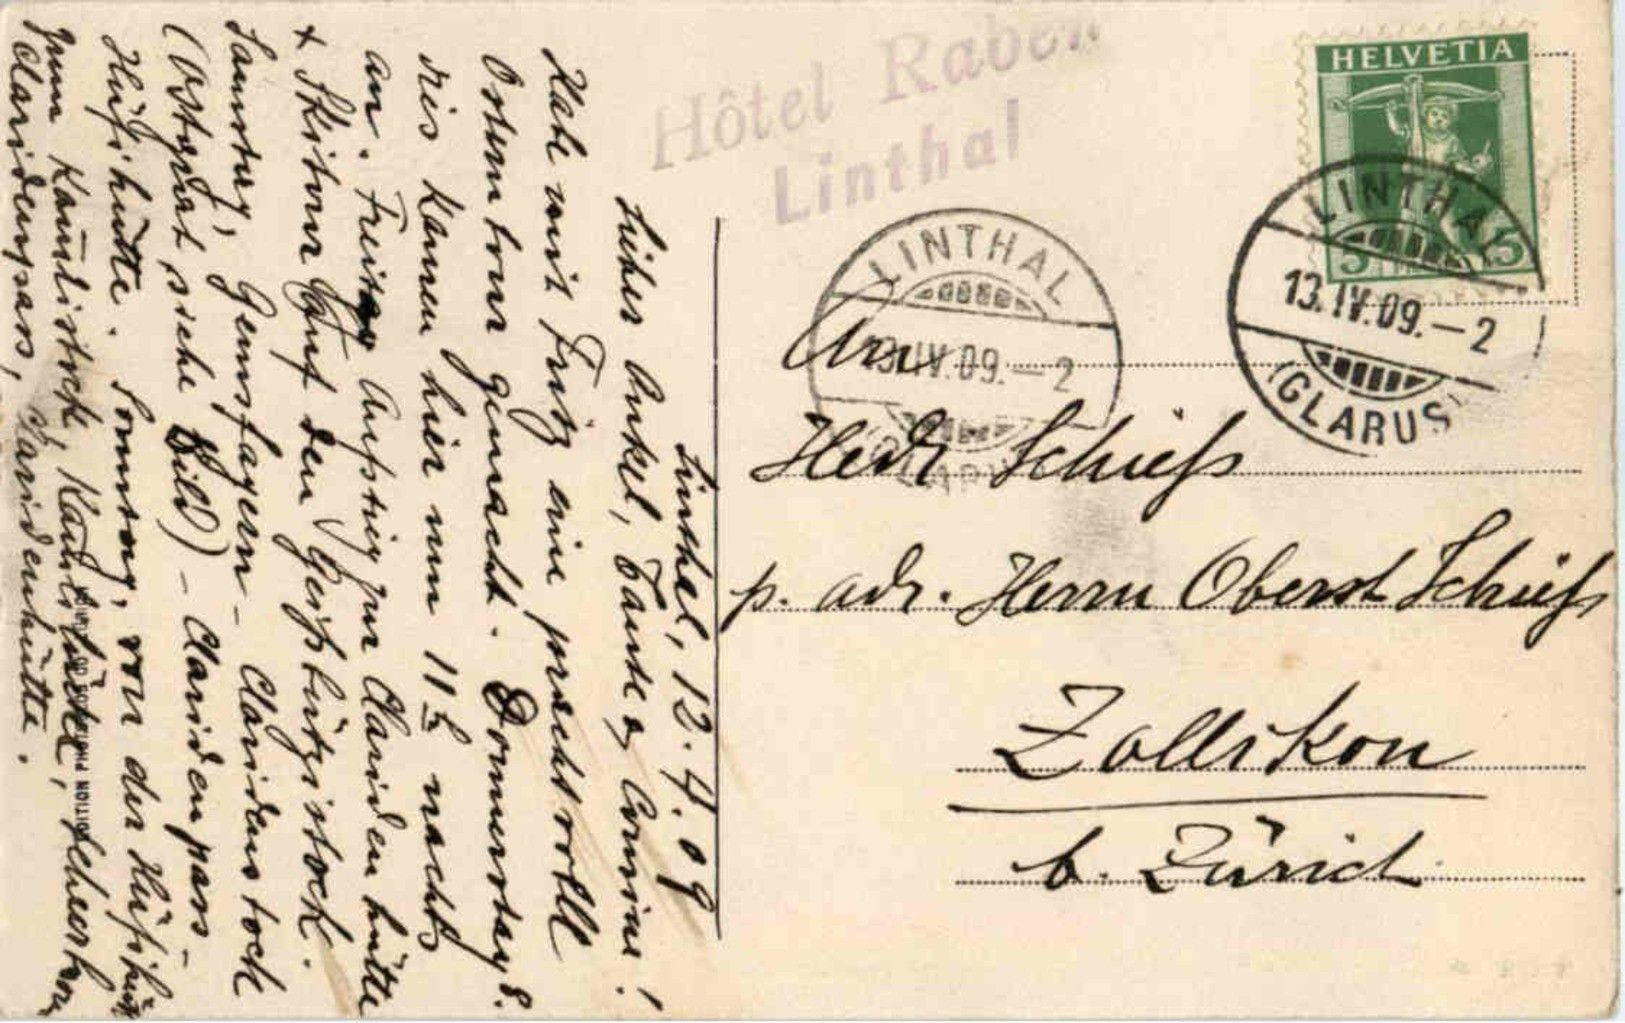 Hôtel Raben
Linthal
HELVETIA
5 5
LINTHAL
13.IV.09.–2
(GLARUS)
LINTHAL
13.IV.09.–2
(GLARUS)
An
Hedr Schieß
p. adr. Herrn Oberst Schieß
Zollikon
b. Zürich
Linthal, 12.4.09
Lieber Onkel, Tante & Cousine!
Habe mit Fritz eine prachtvolle
Ostertour gemacht. Donnerstag 8.
dies kamen hier um 11 h nachts
an. Freitag Aufstieg zur Claridenhütte
& Skitour auf den Geißbützistock.
Samstag, Gemsfayern – Claridenstock
(Ostgrat siehe Bild) – Claridenpass –
Hüfihütte. Sonntag, von der Hüfihütte
zum Kammlistock, Kammlilücke, Scheerhorn
Claridenpass, Claridenhütte.